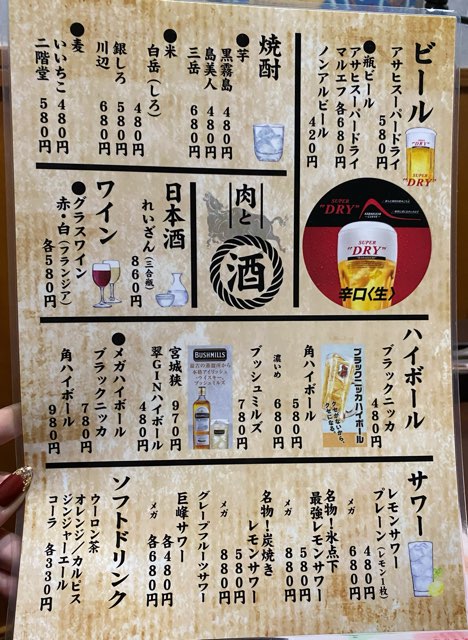 ビール
アサヒスーパードライ
580円
●瓶ビール
アサヒスーパードライ
マルエフ 各680円
ノンアルビール
420円
SUPER
"DRY"
SUPER
"DRY"
辛口〈生〉
焼酎
●芋
黒霧島 480円
島美人 480円
三岳 680円
●米
白岳(しろ)
480円
銀しろ 580円
川辺 680円
●麦
いいちこ 480円
二階堂 580円
肉と
酒
日本酒
れいざん(三合瓶)
860円
ワイン
●グラスワイン
赤・白(フランジア)
各580円
ハイボール
ブラックニッカ
480円
ブラックニッカハイボール
クセがないから、
クセになる。
角ハイボール
580円
濃いめ 680円
ブッシュミルズ
780円
BUSHMILLS
最古の蒸溜所から
本格アイリッシュ
ウイスキー
ブッシュミルズ
宮城狭 970円
翠GINハイボール
480円
●メガハイボール
ブラックニッカ
780円
角ハイボール
980円
サワー
レモンサワー
プレーン(レモン1枚)
480円
メガ 680円
名物!氷点下
最強レモンサワー
580円
メガ 880円
名物!炭焼き
レモンサワー
580円
メガ 880円
グレープフルーツサワー
巨峰サワー
各480円
メガ 各680円
ソフトドリンク
ウーロン茶
オレンジ/カルピス
ジンジャーエール
コーラ 各330円